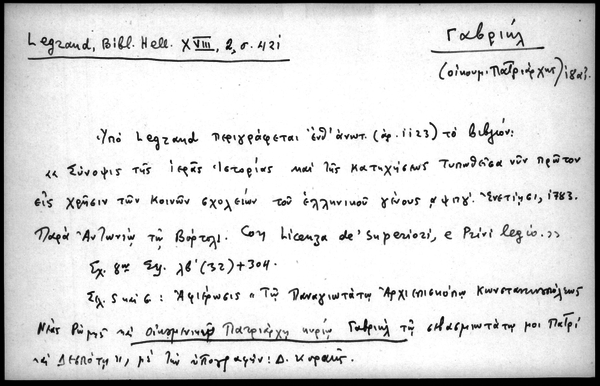 Legrand, Bibl. Hell. XVIII, 2, σ. 421
Γαβριήλ
(οἰκουμ. Πατριάρχης) 1783.
Ὑπό Legrand περιγράφεται ἐνθ' ἀνωτ. (ἀρ. 1123) τό βιβλίον:
«Σύνοψις τῆς ἱερᾶς Ἱστορίας καί τῆς κατηχήσεως τυπωθεῖσα νῦν πρῶτον
εἰς χρῆσιν τῶν κοινῶν σχολείων τοῦ ἑλληνικοῦ γένους αψπγ'. Ἐνετίησι, 1783.
Παρά Ἀντωνίῳ τῷ Βόρτολι. Con Licenza de' Superiori, e Privilegio.»
Σχ. 8ον Σελ. λβ' (32) + 304.
Σελ. 5 καί 6: Ἀφιέρωσις «Τῷ Παναγιωτάτῳ Ἀρχιεπισκόπῳ Κωνσταντινουπόλεως
Νέας Ρώμης καί Οἰκουμενικῷ Πατριάρχῃ κυρίῳ Γαβριήλ τῷ σεβασμιωτάτῳ μοι Πατρί
καί Δεσπότῃ», μέ τήν ὑπογραφήν: Δ.